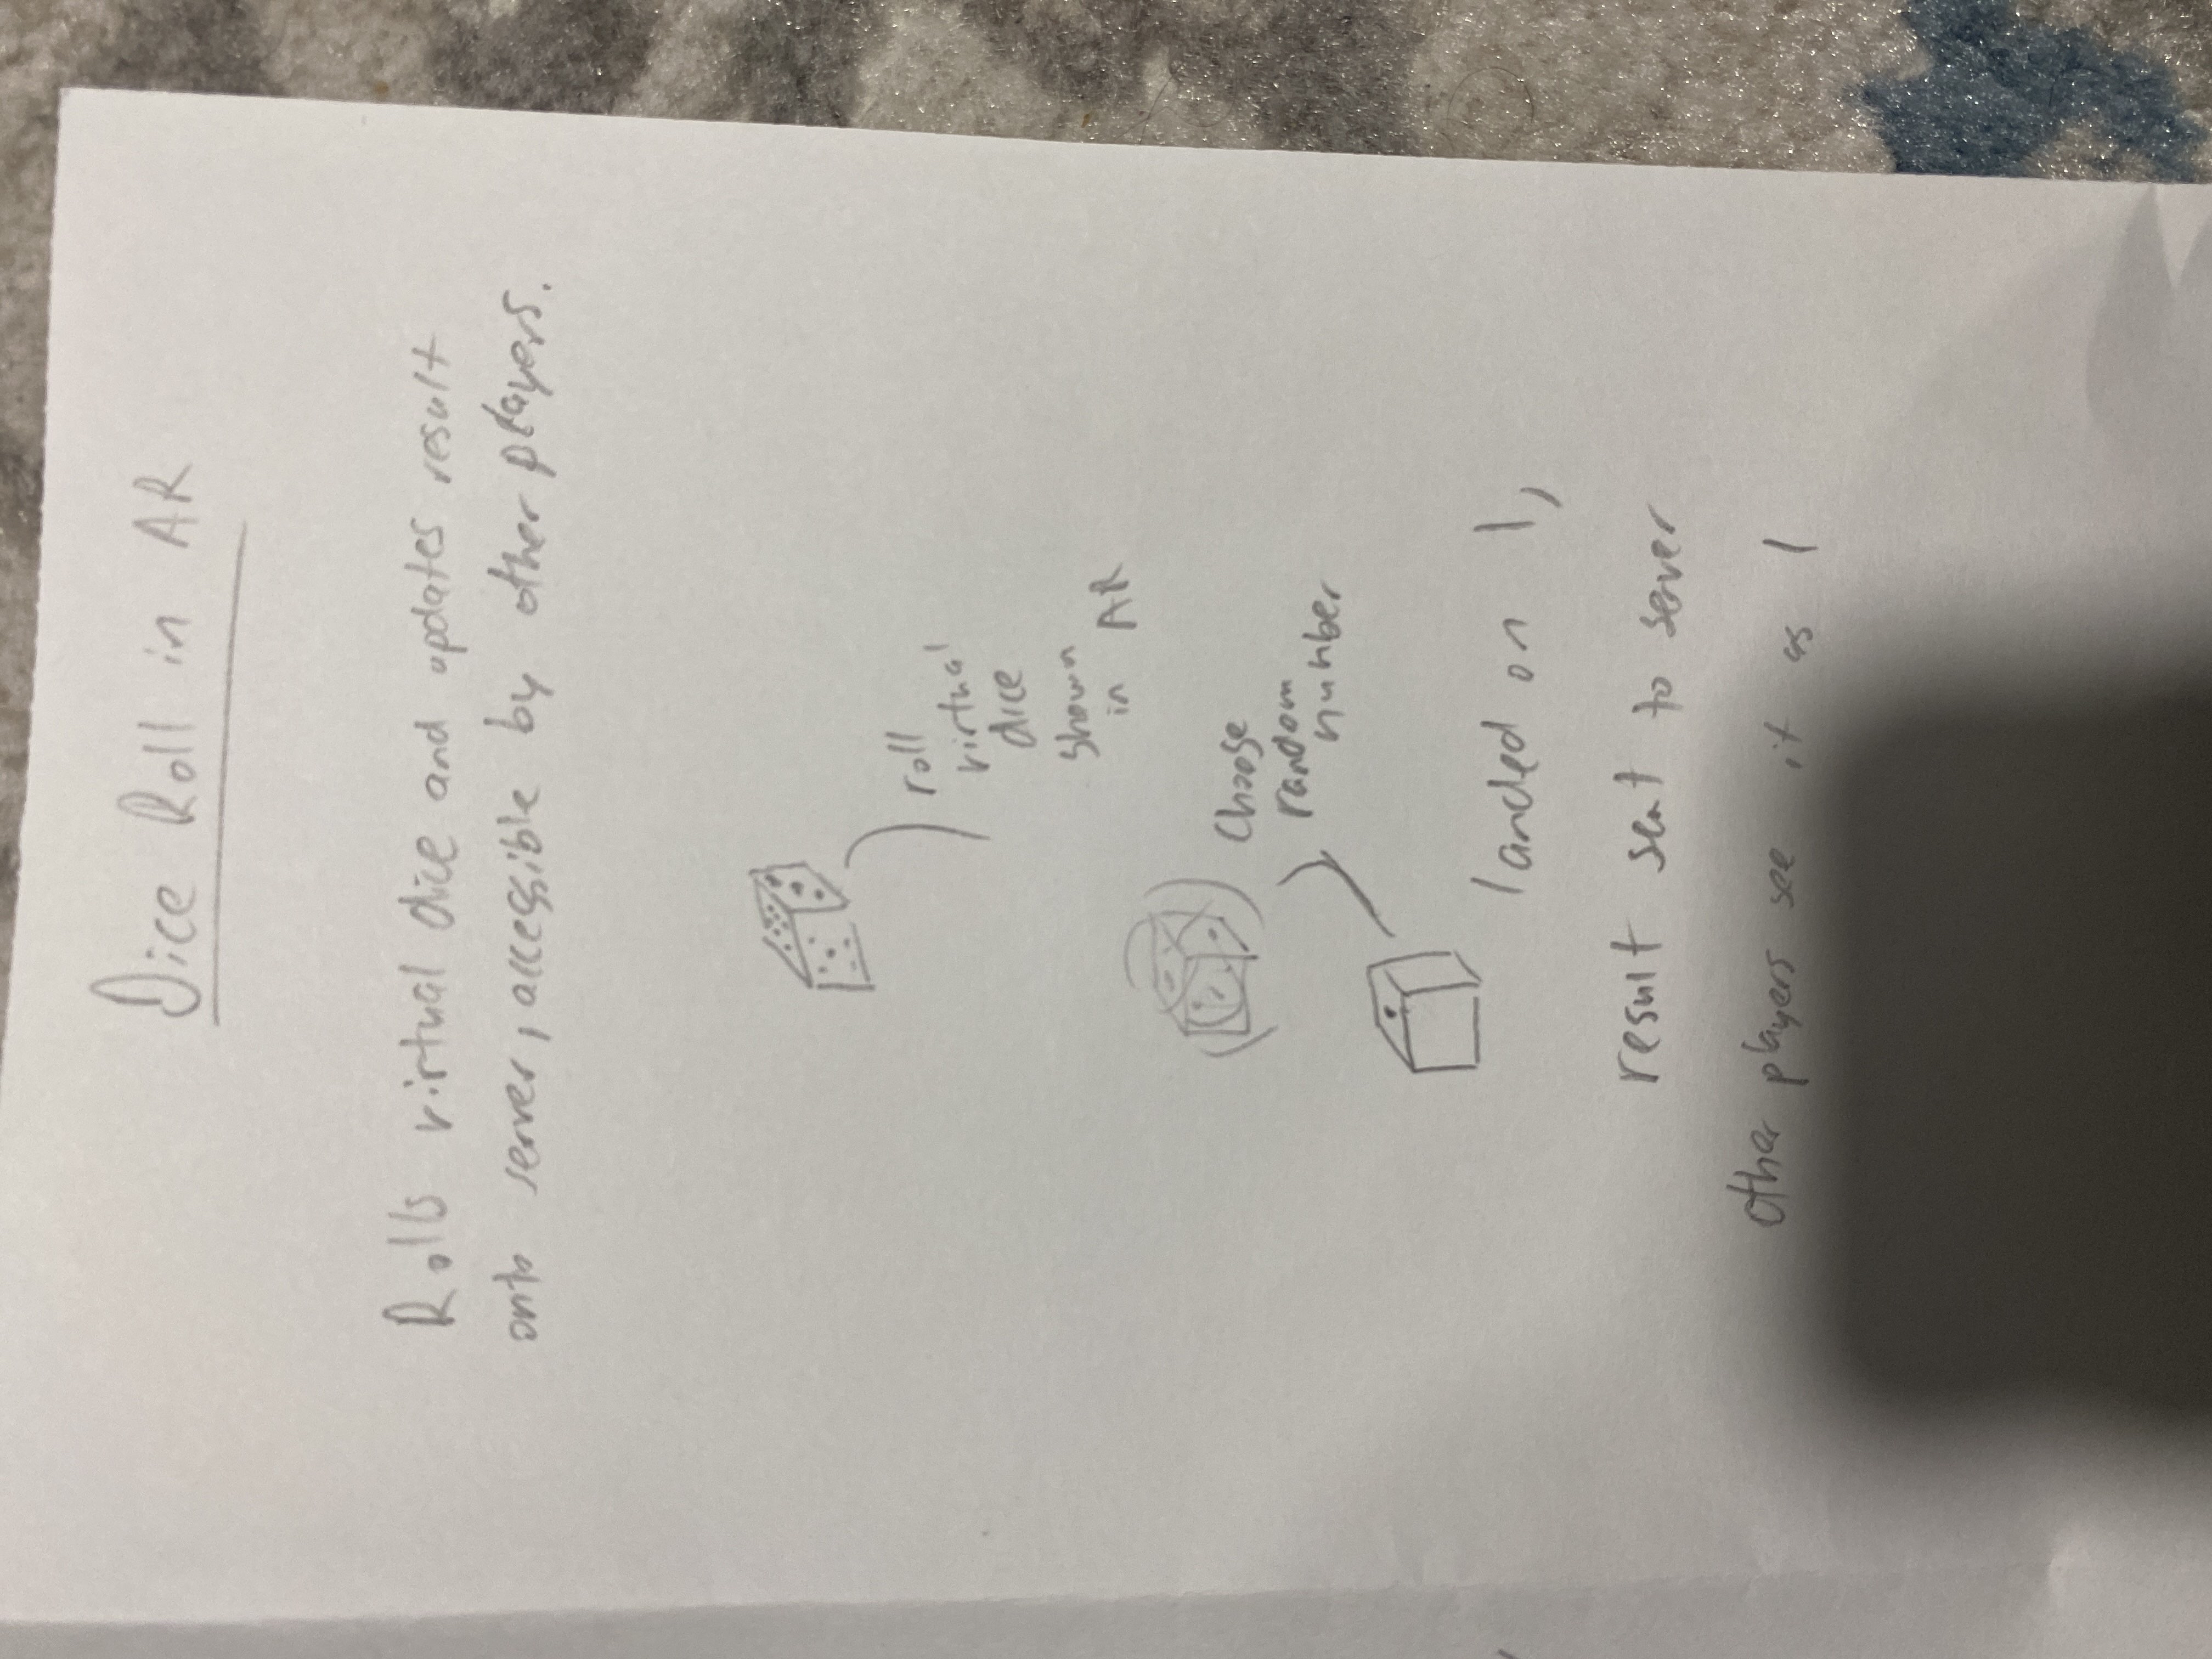 Dice Roll in AR
Rolls virtual dice and updates result
onto server, accessible by other players.
roll
virtual
dice
shown
in AR
Choose
random
number
landed on 1,
result sent to server
other players see it as 1